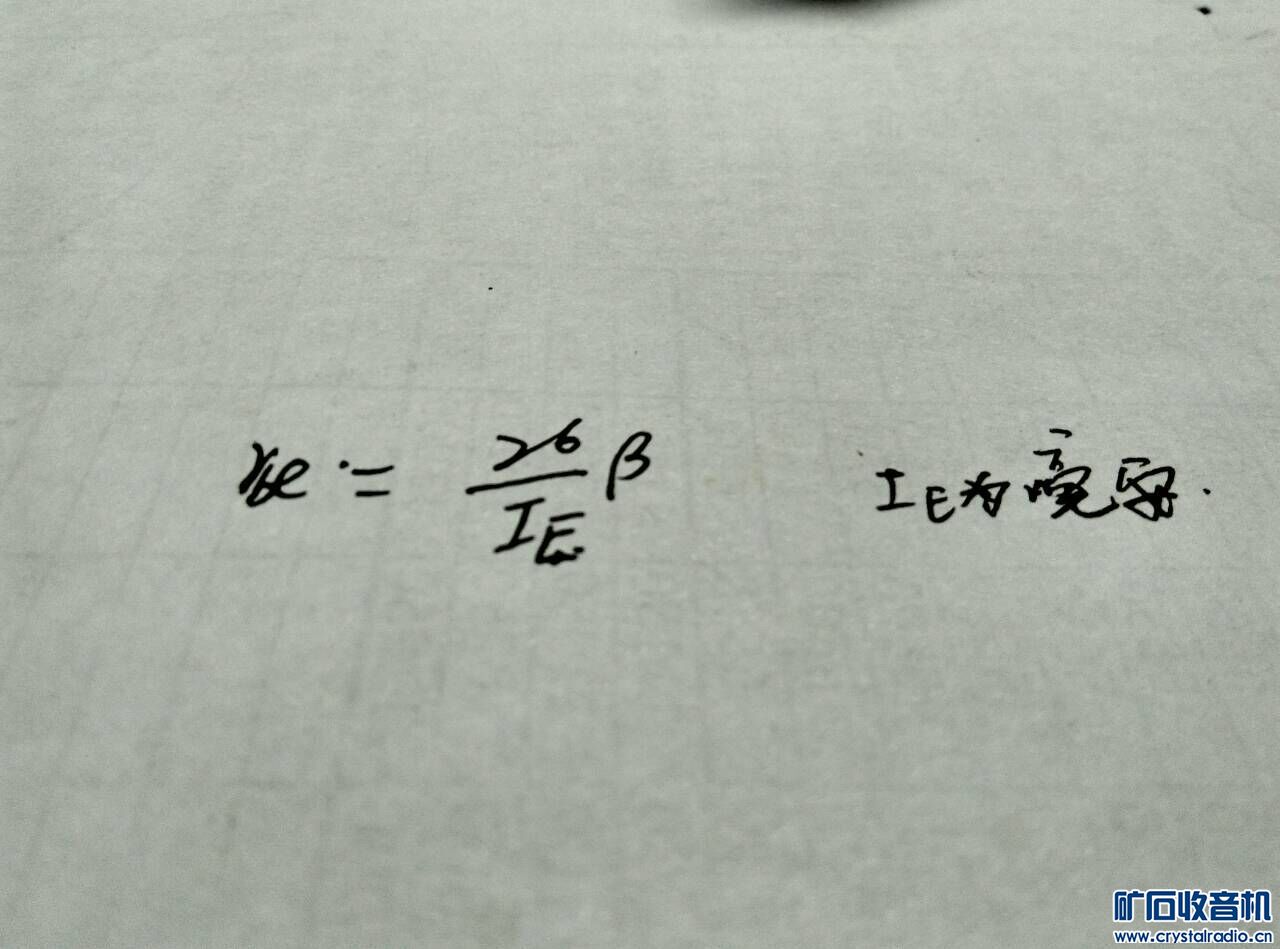 rbe = 26/I_E β I_E为毫安.
矿石收音机
www.crystalradio.cn